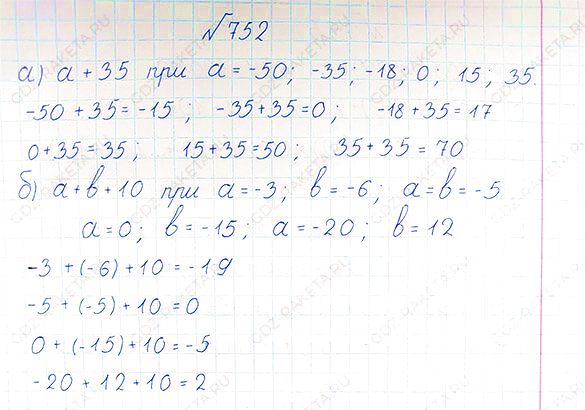 №752
а) a + 35 при a = -50; -35; -18; 0; 15; 35.
-50 + 35 = -15; -35 + 35 = 0; -18 + 35 = 17
0 + 35 = 35; 15 + 35 = 50; 35 + 35 = 70
б) a + b + 10 при a = -3; b = -6; a = b = -5
a = 0; b = -15; a = -20; b = 12
-3 + (-6) + 10 = -19
-5 + (-5) + 10 = 0
0 + (-15) + 10 = -5
-20 + 12 + 10 = 2